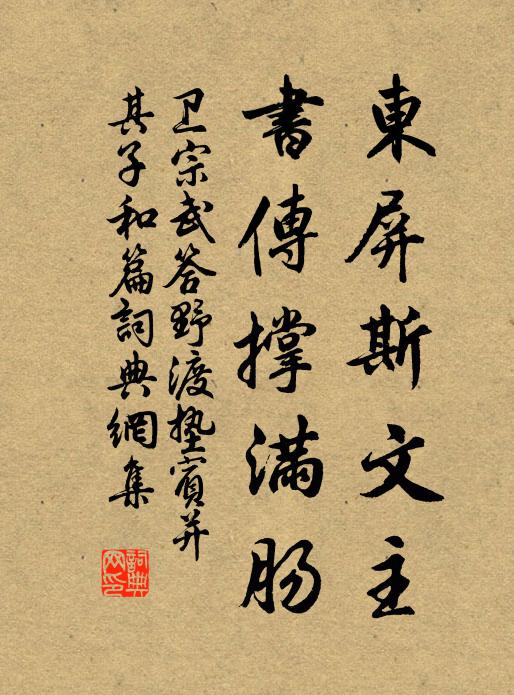 東屏斯文主
書傳撐滿肠
卫宗武答野渡墊賓并
其子和篇詞典網集
詞典网印